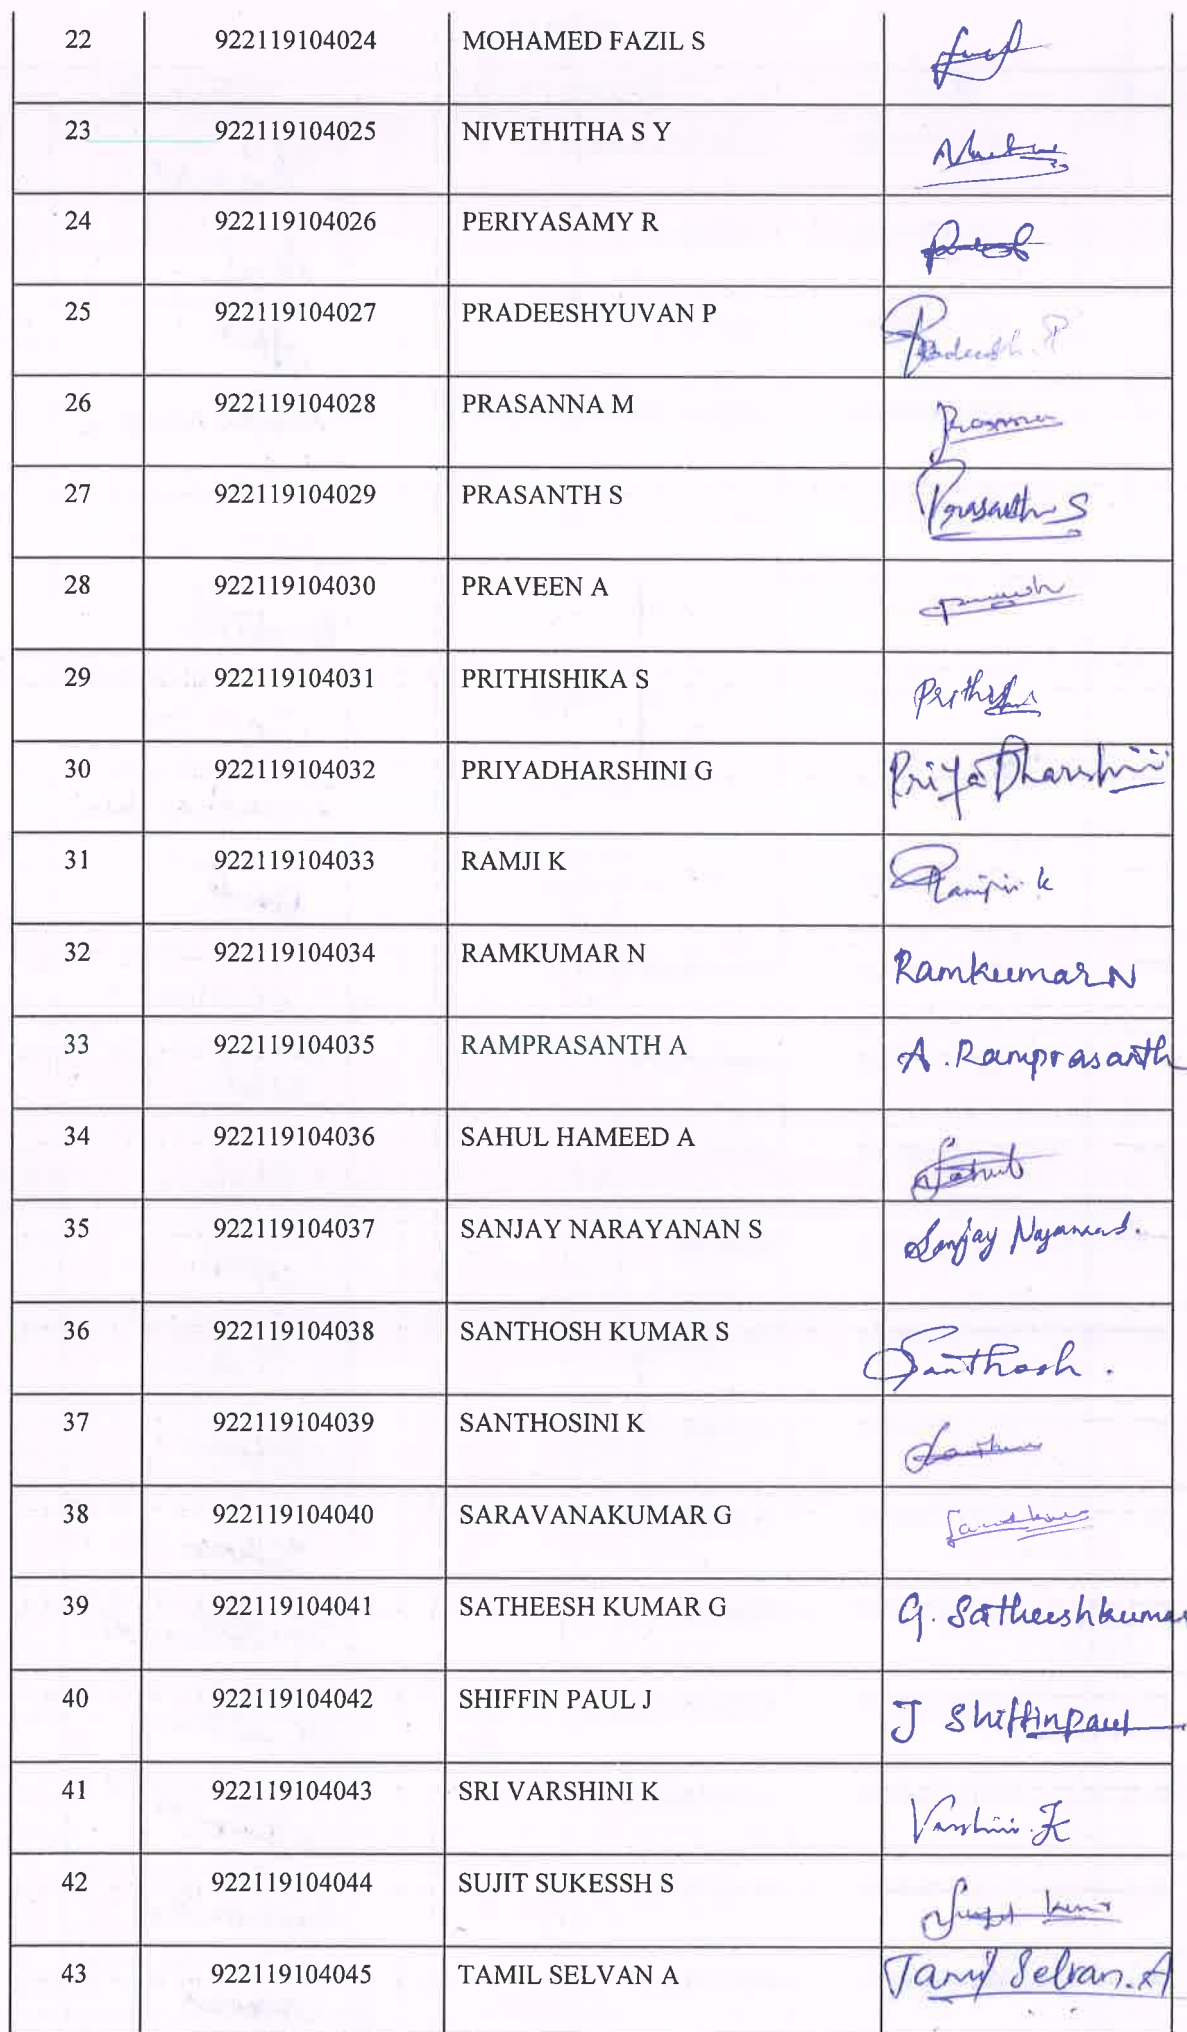 22 922119104024 MOHAMED FAZIL S
23 922119104025 NIVETHITHA S Y
24 922119104026 PERIYASAMY R
25 922119104027 PRADEESHYUVAN P Pradeesh. P
26 922119104028 PRASANNA M
27 922119104029 PRASANTH S Prasanth S
28 922119104030 PRAVEEN A
29 922119104031 PRITHISHIKA S
30 922119104032 PRIYADHARSHINI G PriyaDharshini
31 922119104033 RAMJI K Ramji K
32 922119104034 RAMKUMAR N Ramkumar N
33 922119104035 RAMPRASANTH A A. Ramprasanth
34 922119104036 SAHUL HAMEED A Sahul
35 922119104037 SANJAY NARAYANAN S Sanjay
36 922119104038 SANTHOSH KUMAR S Santhosh.
37 922119104039 SANTHOSINI K
38 922119104040 SARAVANAKUMAR G
39 922119104041 SATHEESH KUMAR G G. Satheeshkumar
40 922119104042 SHIFFIN PAUL J J Shiffinpaul
41 922119104043 SRI VARSHINI K Varshini. K
42 922119104044 SUJIT SUKESSH S
43 922119104045 TAMIL SELVAN A Tamil Selvan. A